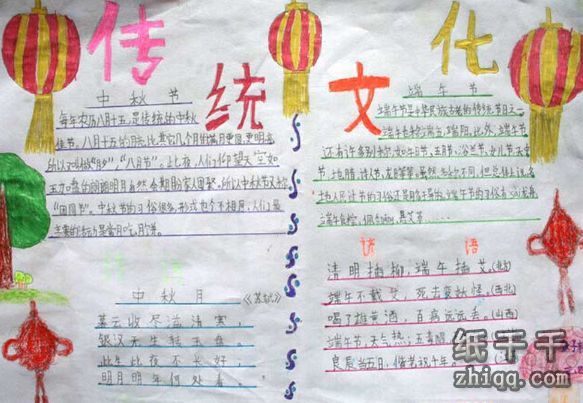 传统文化
中秋节
每年农历八月十五,是传统的中秋
佳节。八月十五的月亮比其它几个月的满月更圆,更明亮,
所以又叫做“月夕”,“八月节”。此夜,人们仰望天空如
玉如盘的朗朗明月,自然会期盼家人团聚。所以中秋节又称
“团圆节”。中秋节的习俗很多,形式也各不相同,人们最
主要的活动是赏月,吃月饼。
诗词
中秋月
《苏轼》
暮云收尽溢清寒
银汉无声转玉盘。
此生此夜不长好,
明月明年何处看。
端午节
端午节是中华民族古老的传统节日之一。
端午也称端五,端阳。此外,端午节
还有许多别称,如:午日节、五月节、浴兰节、女儿节、天中
节、地腊、诗人节、龙日等等。虽然名称不同,但总体上说,各
地人民过节的习俗还是同多于异的。端午节的习俗有:赛龙舟,
端午食粽,佩香囊,悬艾草……
谚语
清明插柳,端午插艾。
端午不戴艾,死去变妖怪。(西北)
喝了雄黄酒,百病远远丢。(山西)
端午节,天气热;五毒醒,
良辰当五日,偕老祝千年。
纸千千
zhiqq.com